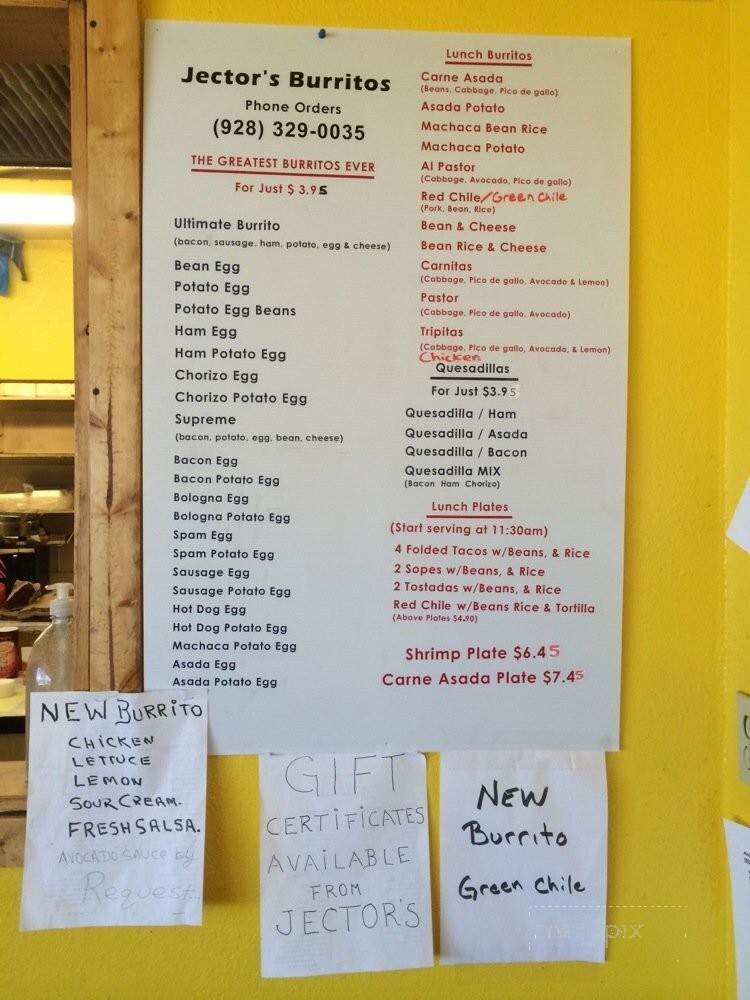 Jector's Burritos
Phone Orders
(928) 329-0035
THE GREATEST BURRITOS EVER
For Just $ 3.95
Ultimate Burrito
(bacon, sausage, ham, potato, egg & cheese)
Bean Egg
Potato Egg
Potato Egg Beans
Ham Egg
Ham Potato Egg
Chorizo Egg
Chorizo Potato Egg
Supreme
(bacon, potato, egg, bean, cheese)
Bacon Egg
Bacon Potato Egg
Bologna Egg
Bologna Potato Egg
Spam Egg
Spam Potato Egg
Sausage Egg
Sausage Potato Egg
Hot Dog Egg
Hot Dog Potato Egg
Machaca Potato Egg
Asada Egg
Asada Potato Egg
Lunch Burritos
Carne Asada
(Beans, Cabbage, Pico de gallo)
Asada Potato
Machaca Bean Rice
Machaca Potato
Al Pastor
(Cabbage, Avocado, Pico de gallo)
Red Chile/Green Chile
(Pork, Bean, Rice)
Bean & Cheese
Bean Rice & Cheese
Carnitas
(Cabbage, Pico de gallo, Avocado & Lemon)
Pastor
(Cabbage, Pico de gallo, Avocado)
Tripitas
(Cabbage, Pico de gallo, Avocado, & Lemon)
Chicken
Quesadillas
For Just $3.95
Quesadilla / Ham
Quesadilla / Asada
Quesadilla / Bacon
Quesadilla MIX
(Bacon Ham Chorizo)
Lunch Plates
(Start serving at 11:30am)
4 Folded Tacos w/Beans, & Rice
2 Sopes w/Beans, & Rice
2 Tostadas w/Beans, & Rice
Red Chile w/Beans Rice & Tortilla
(Above Plates $4.90)
Shrimp Plate $6.45
Carne Asada Plate $7.45
NEW BURRiTO
CHiCKEN
LETTUCE
LEMON
SOUR CREAM.
FRESH SALSA.
AVOCADO SAUCE by
Request
GIFT
CERTiFiCATES
AVAiLABLE
FROM
JECTOR'S
NEW
Burrito
Green chile